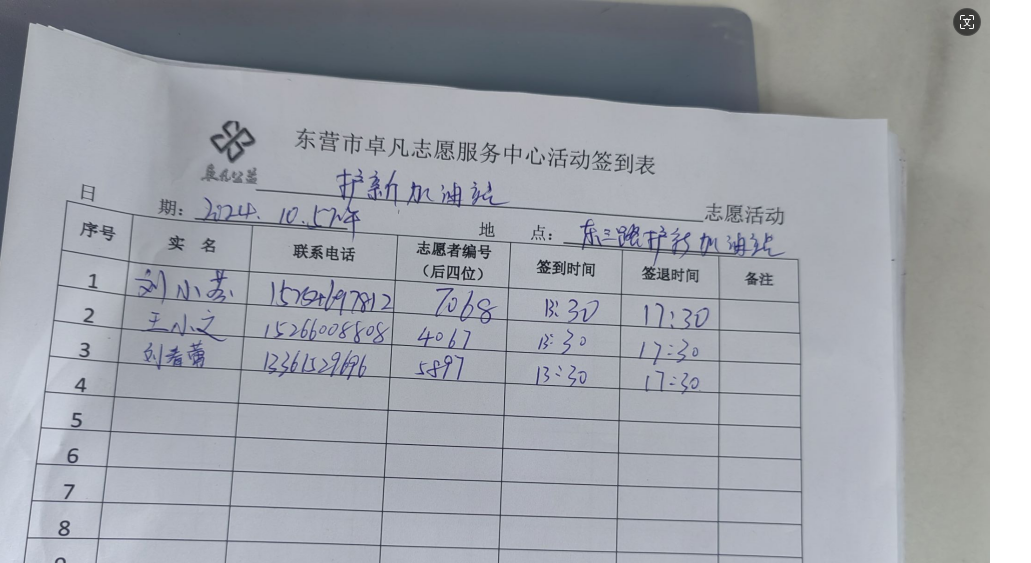 东营市卓凡志愿服务中心活动签到表
卓凡公益
护新加油站 志愿活动
日 期: 2024.10.5下午 地 点: 东三路护新加油站
序号 实 名 联系电话 志愿者编号(后四位) 签到时间 签退时间 备注
1 刘小芬 7068 13:30 17:30
2 王小文 15266008808 4067 13:30 17:30
3 刘春蕾 13361529696 5897 13:30 17:30
4
5
6
7
8